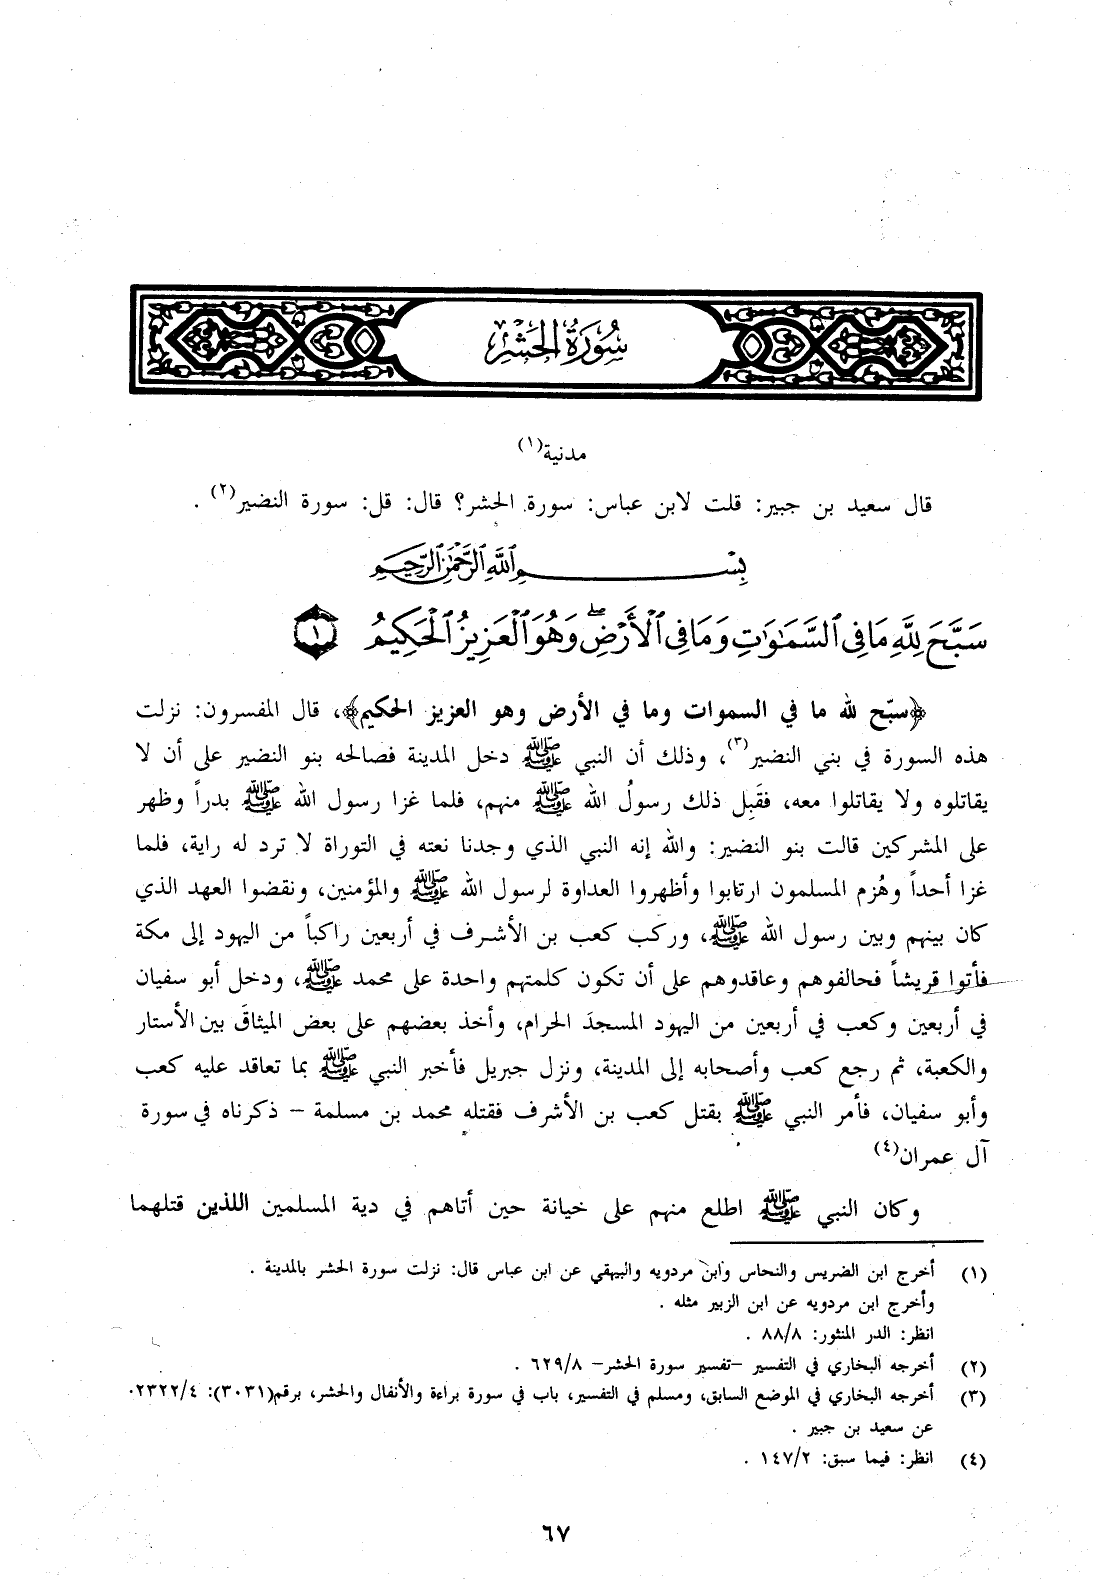 سُورَةُ الحَشْرِ
مدنية(١)
قال سعيد بن جبير: قلت لابن عباس: سورة الحشر؟ قال: قل: سورة النضير(٢) .
بِسْمِ اللَّهِ الرَّحْمَٰنِ الرَّحِيمِ
سَبَّحَ لِلَّهِ مَا فِي السَّمَٰوَٰتِ وَمَا فِي الْأَرْضِ ۖ وَهُوَ الْعَزِيزُ الْحَكِيمُ ١
﴿سبّح لله ما في السموات وما في الأرض وهو العزيز الحكيم﴾، قال المفسرون: نزلت
هذه السورة في بني النضير(٣)، وذلك أن النبي ﷺ دخل المدينة فصالحه بنو النضير على أن لا
يقاتلوه ولا يقاتلوا معه، فقَبِل ذلك رسولُ الله ﷺ منهم، فلما غزا رسول الله ﷺ بدراً وظهر
على المشركين قالت بنو النضير: والله إنه النبي الذي وجدنا نعته في التوراة لا ترد له راية، فلما
غزا أحداً وهُزم المسلمون ارتابوا وأظهروا العداوة لرسول الله ﷺ والمؤمنين، ونقضوا العهد الذي
كان بينهم وبين رسول الله ﷺ، وركب كعب بن الأشرف في أربعين راكباً من اليهود إلى مكة
فأتوا قريشاً فحالفوهم وعاقدوهم على أن تكون كلمتهم واحدة على محمد ﷺ، ودخل أبو سفيان
في أربعين وكعب في أربعين من اليهود المسجدَ الحرام، وأخذ بعضهم على بعض الميثاقَ بين الأستار
والكعبة، ثم رجع كعب وأصحابه إلى المدينة، ونزل جبريل فأخبر النبي ﷺ بما تعاقد عليه كعب
وأبو سفيان، فأمر النبي ﷺ بقتل كعب بن الأشرف فقتله محمد بن مسلمة – ذكرناه في سورة
آل عمران(٤)
وكان النبي ﷺ اطلع منهم على خيانة حين أتاهم في دية المسلمين اللذين قتلهما
(١) أخرج ابن الضريس والنحاس وابن مردويه والبيهقي عن ابن عباس قال: نزلت سورة الحشر بالمدينة .
وأخرج ابن مردويه عن ابن الزبير مثله .
انظر: الدر المنثور: ٨/‏٨٨ .
(٢) أخرجه البخاري في التفسير –تفسير سورة الحشر– ٨/‏٦٢٩ .
(٣) أخرجه البخاري في الموضع السابق، ومسلم في التفسير، باب في سورة براءة والأنفال والحشر، برقم(٣٠٣١): ٤/‏٢٣٢٢.
عن سعيد بن جبير .
(٤) انظر: فيما سبق: ٢/‏١٤٧ .
٦٧